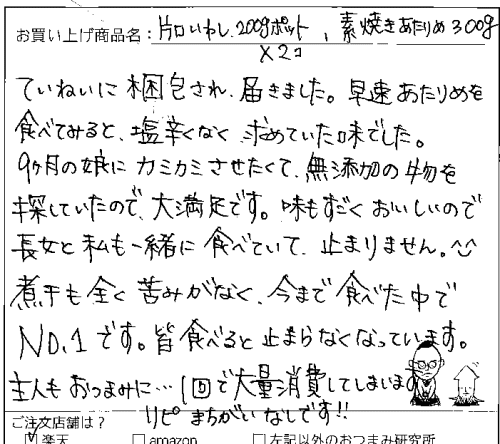 お買い上げ商品名:片口いわし200gポット、素焼きあたりめ300g
×2コ
ていねいに梱包され、届きました。早速あたりめを
食べてみると、塩辛くなく求めていた味でした。
9ヶ月の娘にカミカミさせたくて、無添加の物を
探していたので、大満足です。味もすごくおいしいので
長女と私も一緒に食べていて、止まりません。^^
煮干も全く苦みがなく、今まで食べた中で
No.1です。皆食べると止まらなくなっています。
主人もおつまみに…1回で大量消費してしまいます
リピまちがいなしです!!
ご注文店舗は?
☑楽天 □amazon □左記以外のおつまみ研究所